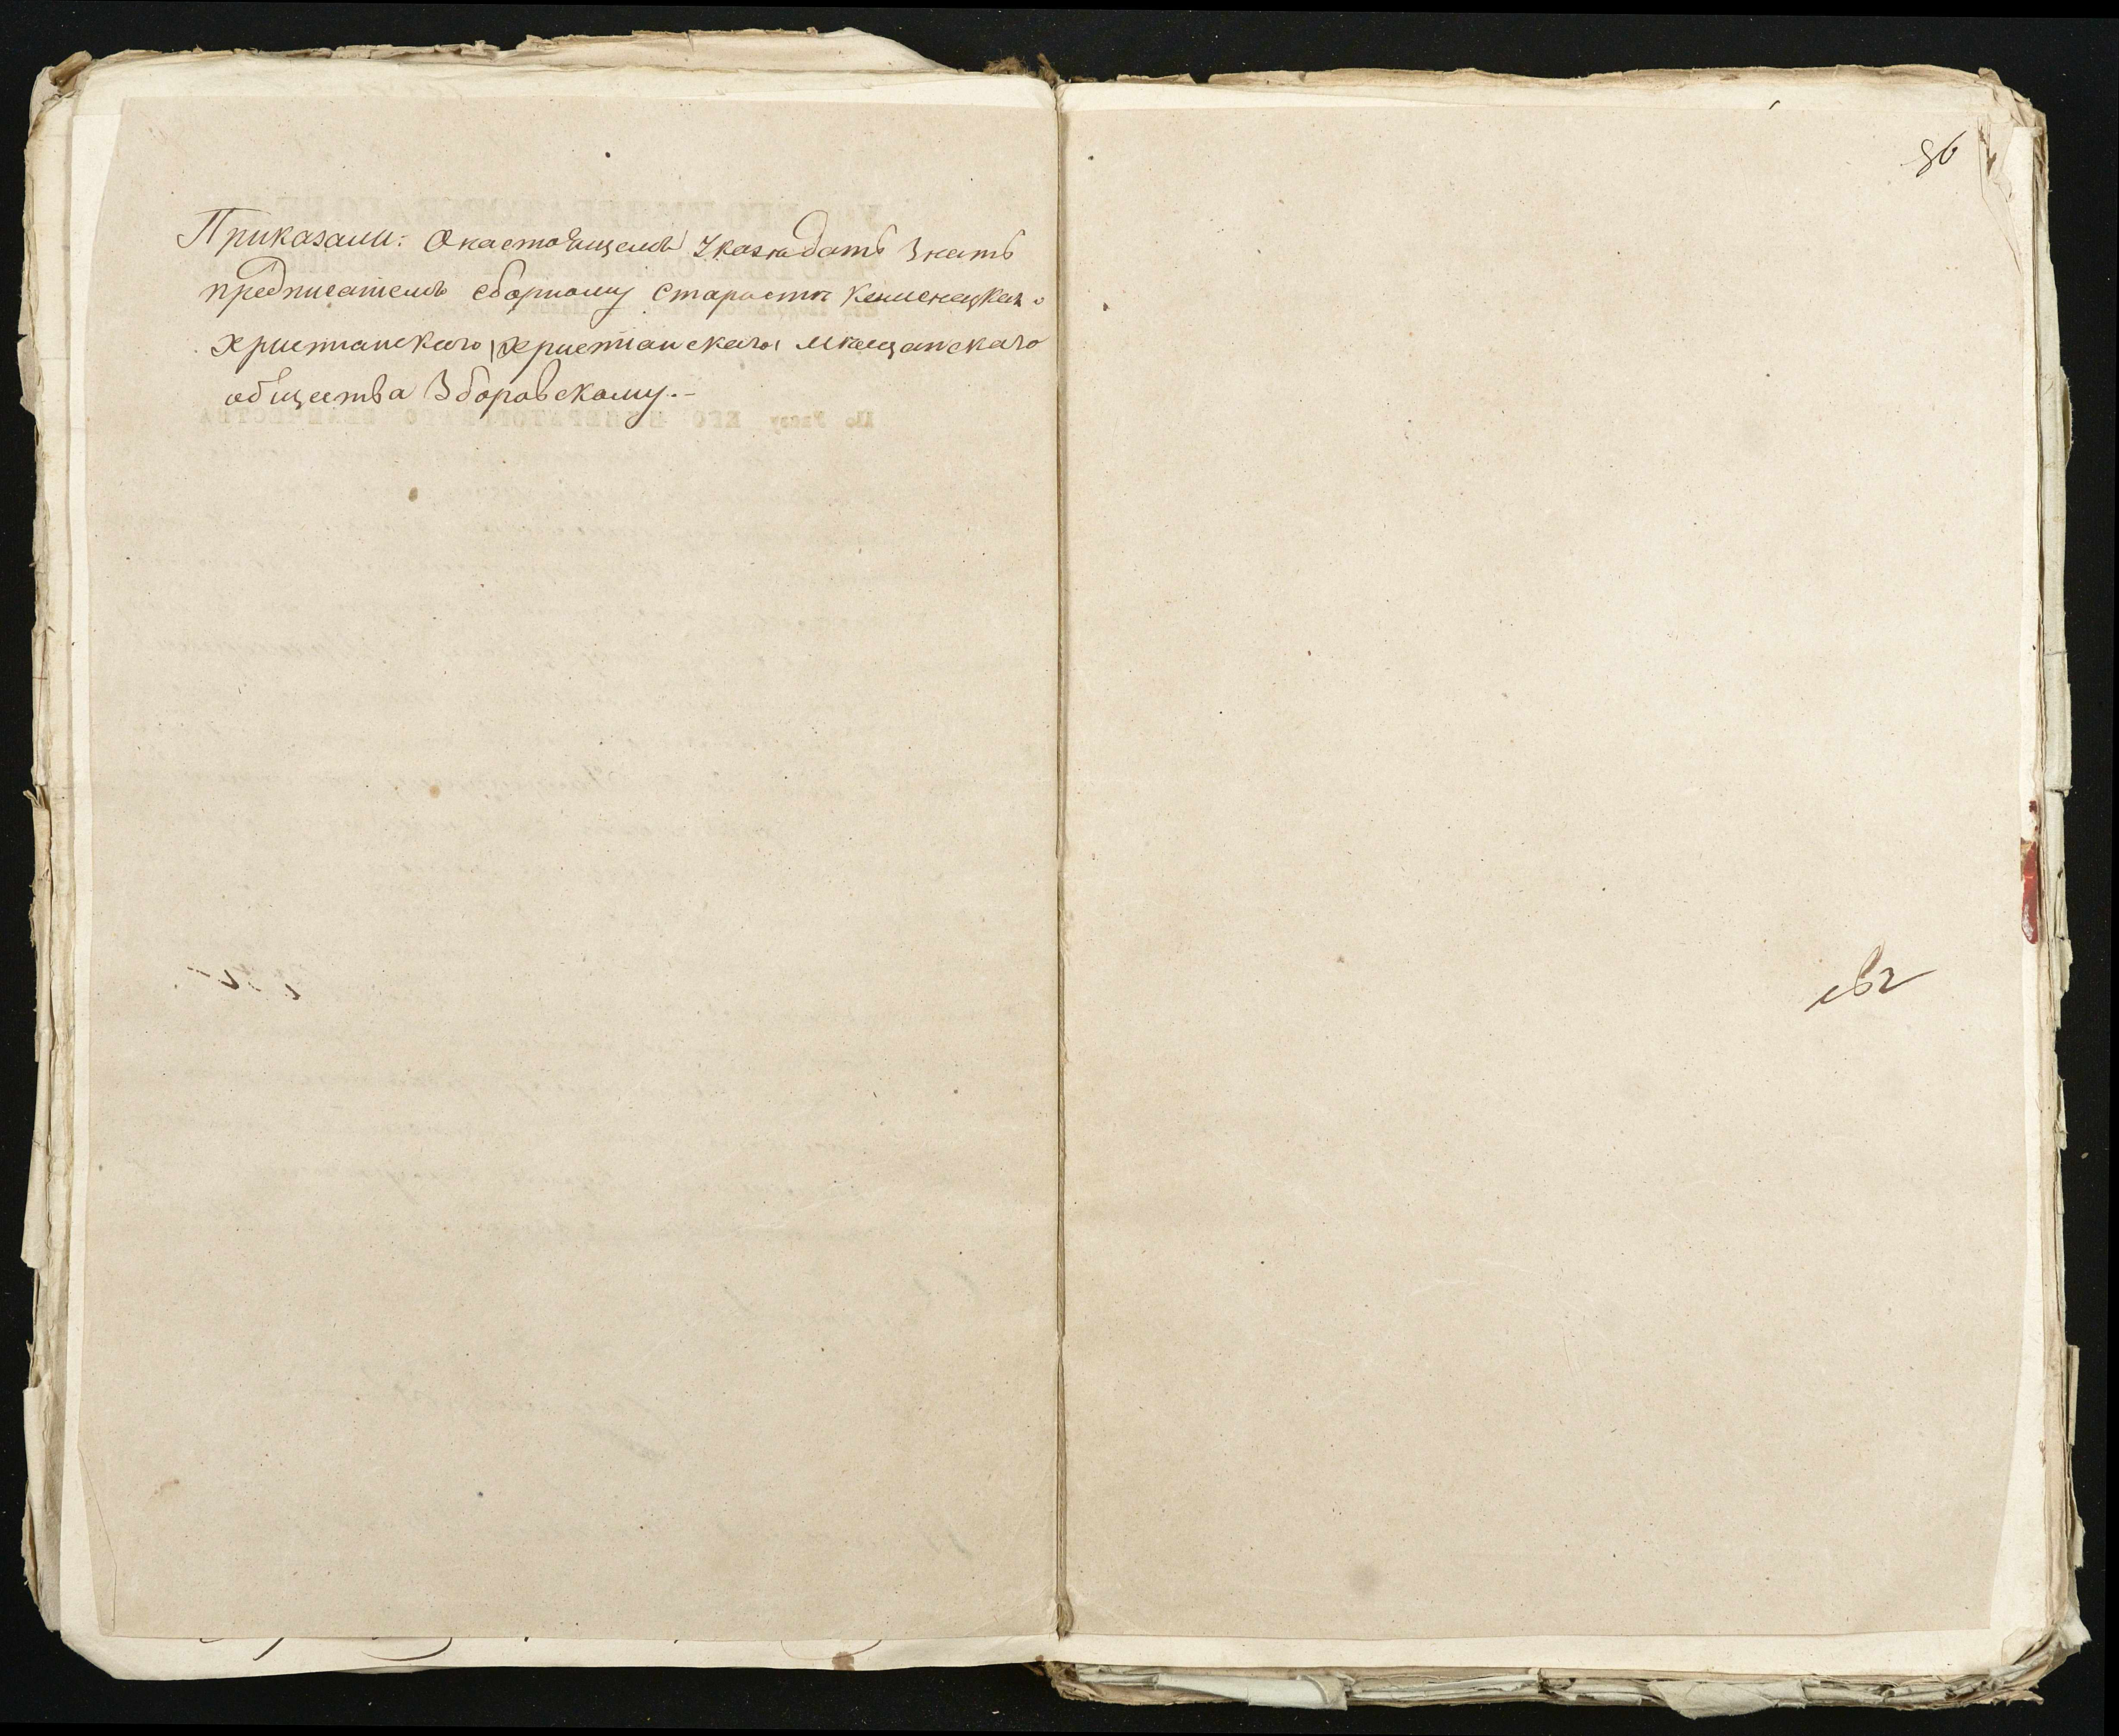 Приказали: О настоящемъ Указѣ дать знать
предписаніемъ сборному Старостѣ Каменецкаго
христіанскаго христіанскаго мѣщанскаго
общества Зборовскому.-
86